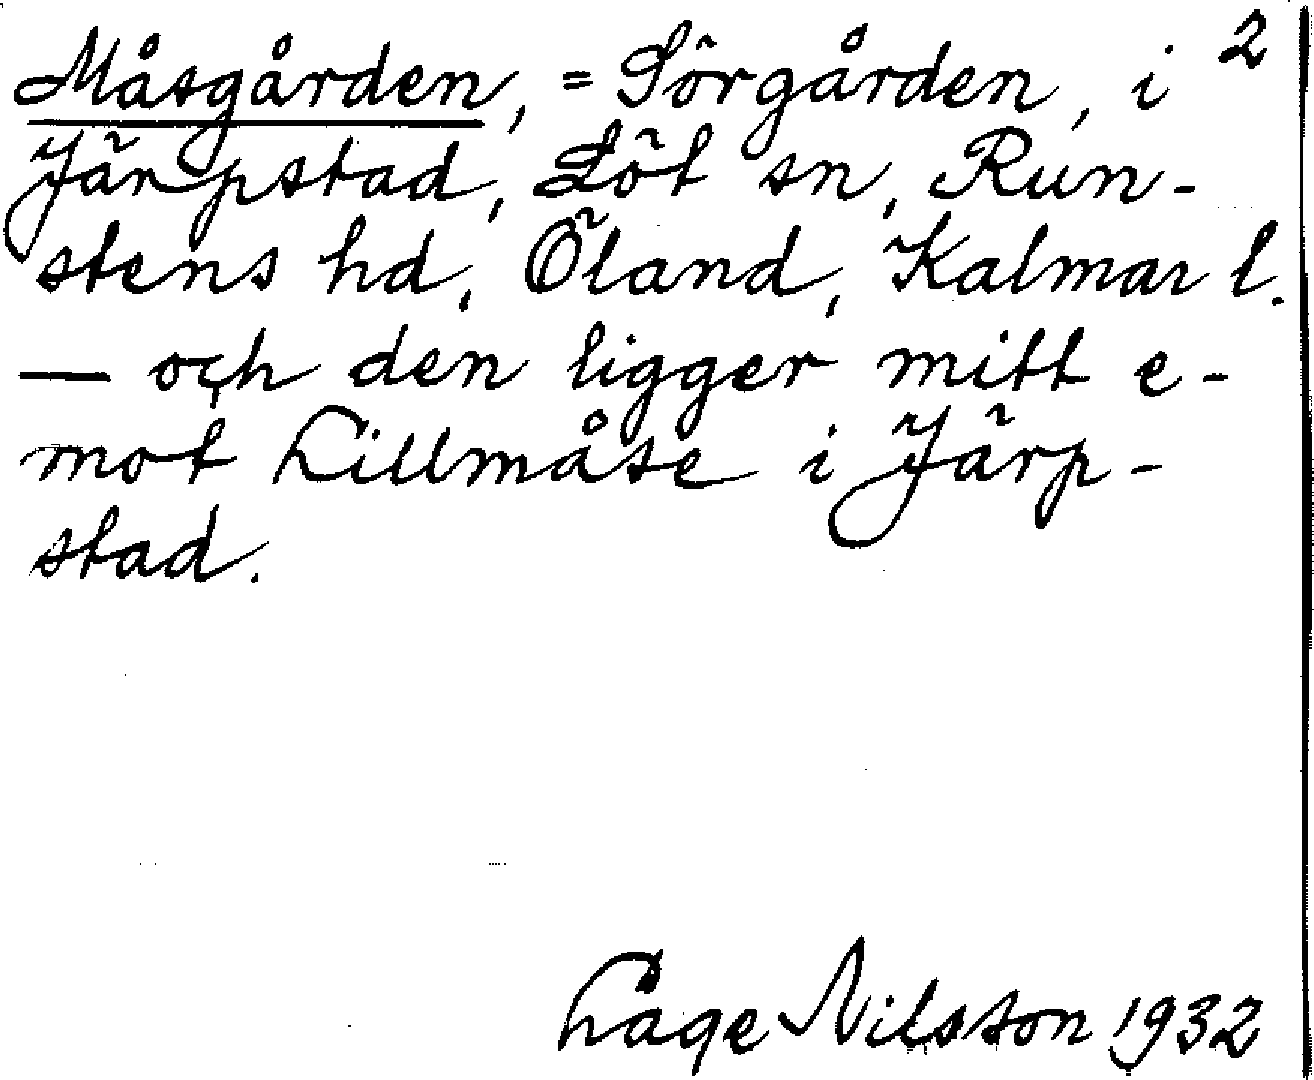 Måsgården, = Sörgården, i 2
Järpstad, Löt sn, Run-
stens hd, Öland, Kalmar l.
— och den ligger mitt e-
mot Lillmåse i Järp-
stad.
Lage Nilsson 1932